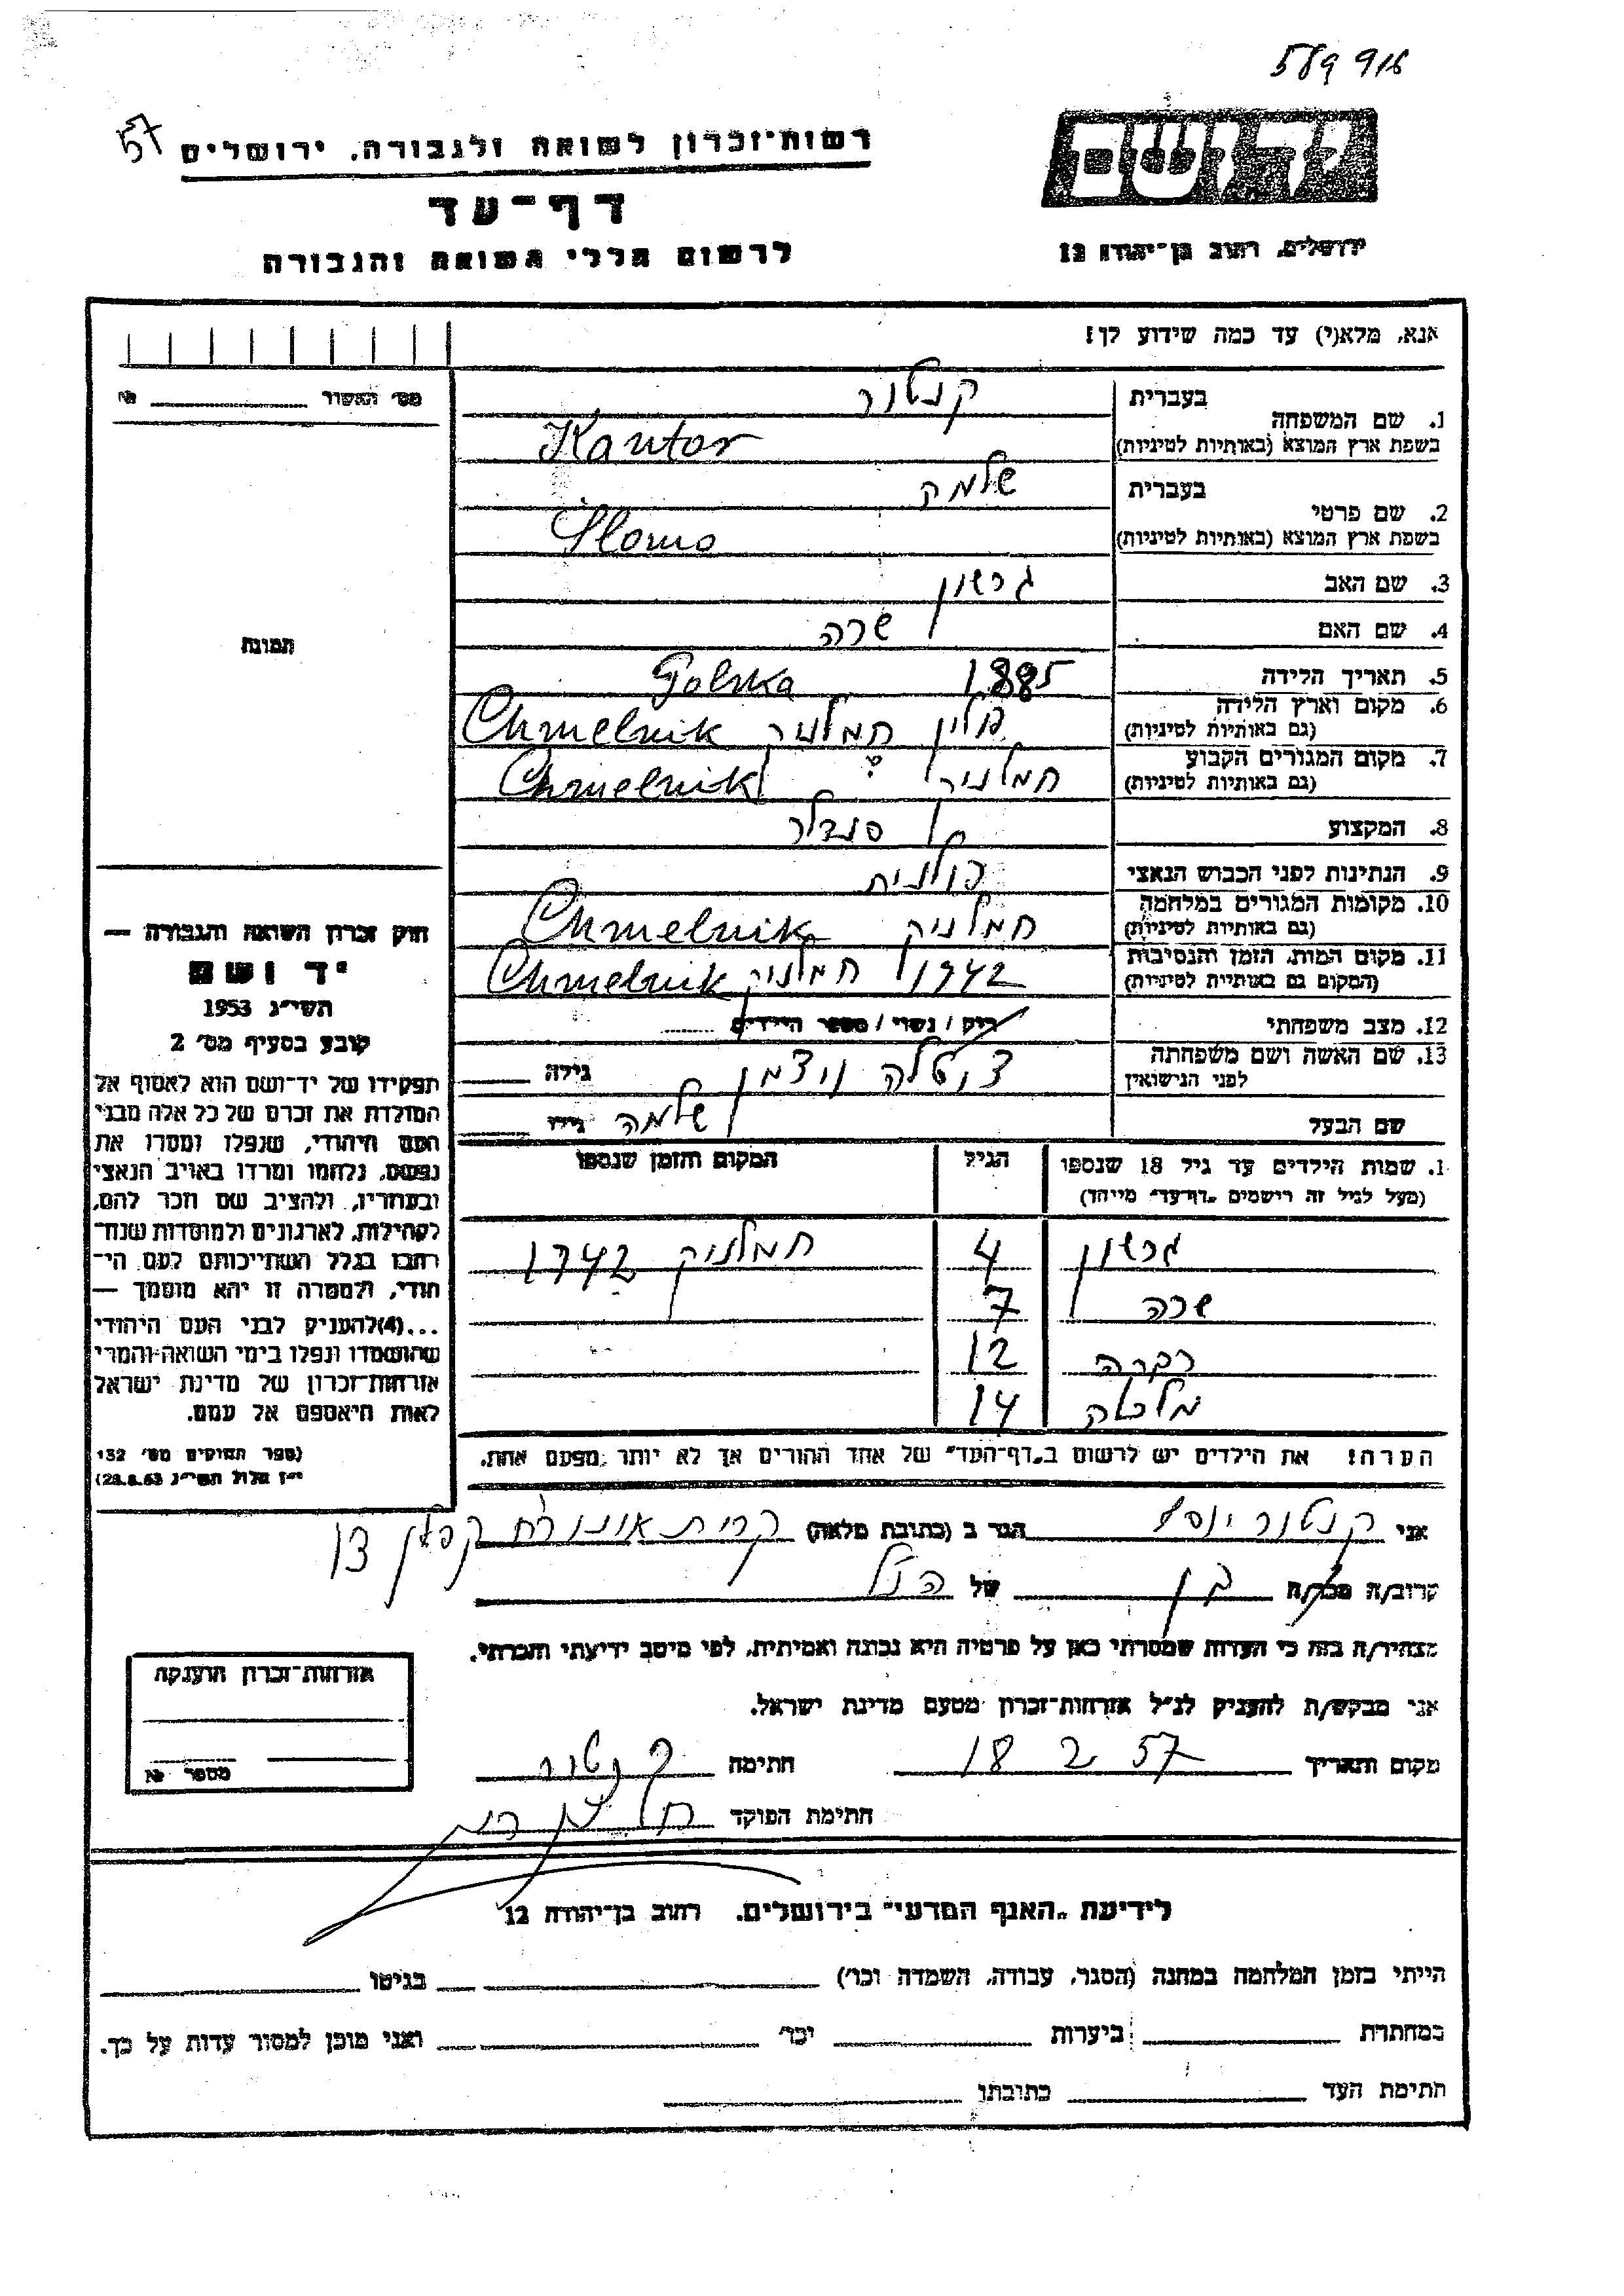 589 916
57
רשות־זכרון לשואה ולגבורה, ירושלים
יד ושם
דף־עד
לרשום חללי השואה והגבורה
ירושלים, רחוב בן־יהודה 12
אנא, מלא(י) עד כמה שידוע לך!
מס׳ האשור №
תמונה
בעברית קנטור
1. שם המשפחה
בשפת ארץ המוצא (באותיות לטיניות) Kantor
בעברית שלמה
2. שם פרטי
בשפת ארץ המוצא (באותיות לטיניות) Slomo
3. שם האב גרשון
4. שם האם שרה
5. תאריך הלידה 1885 Polska
6. מקום וארץ הלידה
(גם באותיות לטיניות) פולין חמלניק Chmelnik
7. מקום המגורים הקבוע
(גם באותיות לטיניות) חמלניק Chmelnik
8. המקצוע סנדלר
9. הנתינות לפני הכבוש הנאצי פולנית
10. מקומות המגורים במלחמה
(גם באותיות לטיניות) חמלניק Chmelnik
11. מקום המות, הזמן והנסיבות
(המקום גם באותיות לטיניות) 1942 חמלניק Chmelnik
12. מצב משפחתי רוק / נשוי / מספר הילדים
13. שם האשה ושם משפחתה
לפני הנישואין ויצמן גילה
שם הבעל שלמה גילו
1. שמות הילדים עד גיל 18 שנספו
(מעל לגיל זה רושמים „דף־עד״ מיוחד)
הגיל
המקום והזמן שנספו
גרשון 4 חמלניק 1942
שרה 7
רבקה 12
מלכה 14
הערה! את הילדים יש לרשום ב„דף־העד״ של אחד ההורים אך לא יותר מפעם אחת.
חוק זכרון השואה והגבורה —
יד ושם
תשי״ג 1953
קובע בסעיף מס׳ 2
תפקידו של יד־ושם הוא לאסוף אל
המולדת את זכרם של כל אלה מבני
העם היהודי, שנפלו ומסרו את
נפשם, נלחמו ומרדו באויב הנאצי
ובעוזריו, ולהציב שם וזכר להם,
לקהילות, לארגונים ולמוסדות שנח־
רבו בגלל השתייכותם לעם הי־
הודי, ולמטרה זו יהא מוסמך —
...(4) להעניק לבני העם היהודי
שהושמדו ונפלו בימי השואה והמרי
אזרחות־זכרון של מדינת ישראל
לאות היאספם אל עמם.
(ספר החוקים מס׳ 132
י״ז אלול תשי״ג 28.8.53)
אני קנטור יוסף הגר ב (כתובת מלאה) קרית אונו רח קפלן
קרוב/ה מכר/ה בן של הנ״ל
מצהיר/ה בזה כי העדות שמסרתי כאן על פרטיה היא נכונה ואמיתית, לפי מיטב ידיעתי והכרתי.
אני מבקש/ת להעניק לנ״ל אזרחות־זכרון מטעם מדינת ישראל.
מקום ותאריך 18 2 57 חתימה קנטור
חתימת הפוקד
אזרחות־זכרון הוענקה
מספר №
לידיעת „האגף המדעי״ בירושלים, רחוב בן־יהודה 12
הייתי בזמן המלחמה במחנה (הסגר, עבודה, השמדה וכו׳) בגיטו
במחתרת ביערות וכו׳ ואני מוכן למסור עדות על כך.
חתימת העד כתובתו